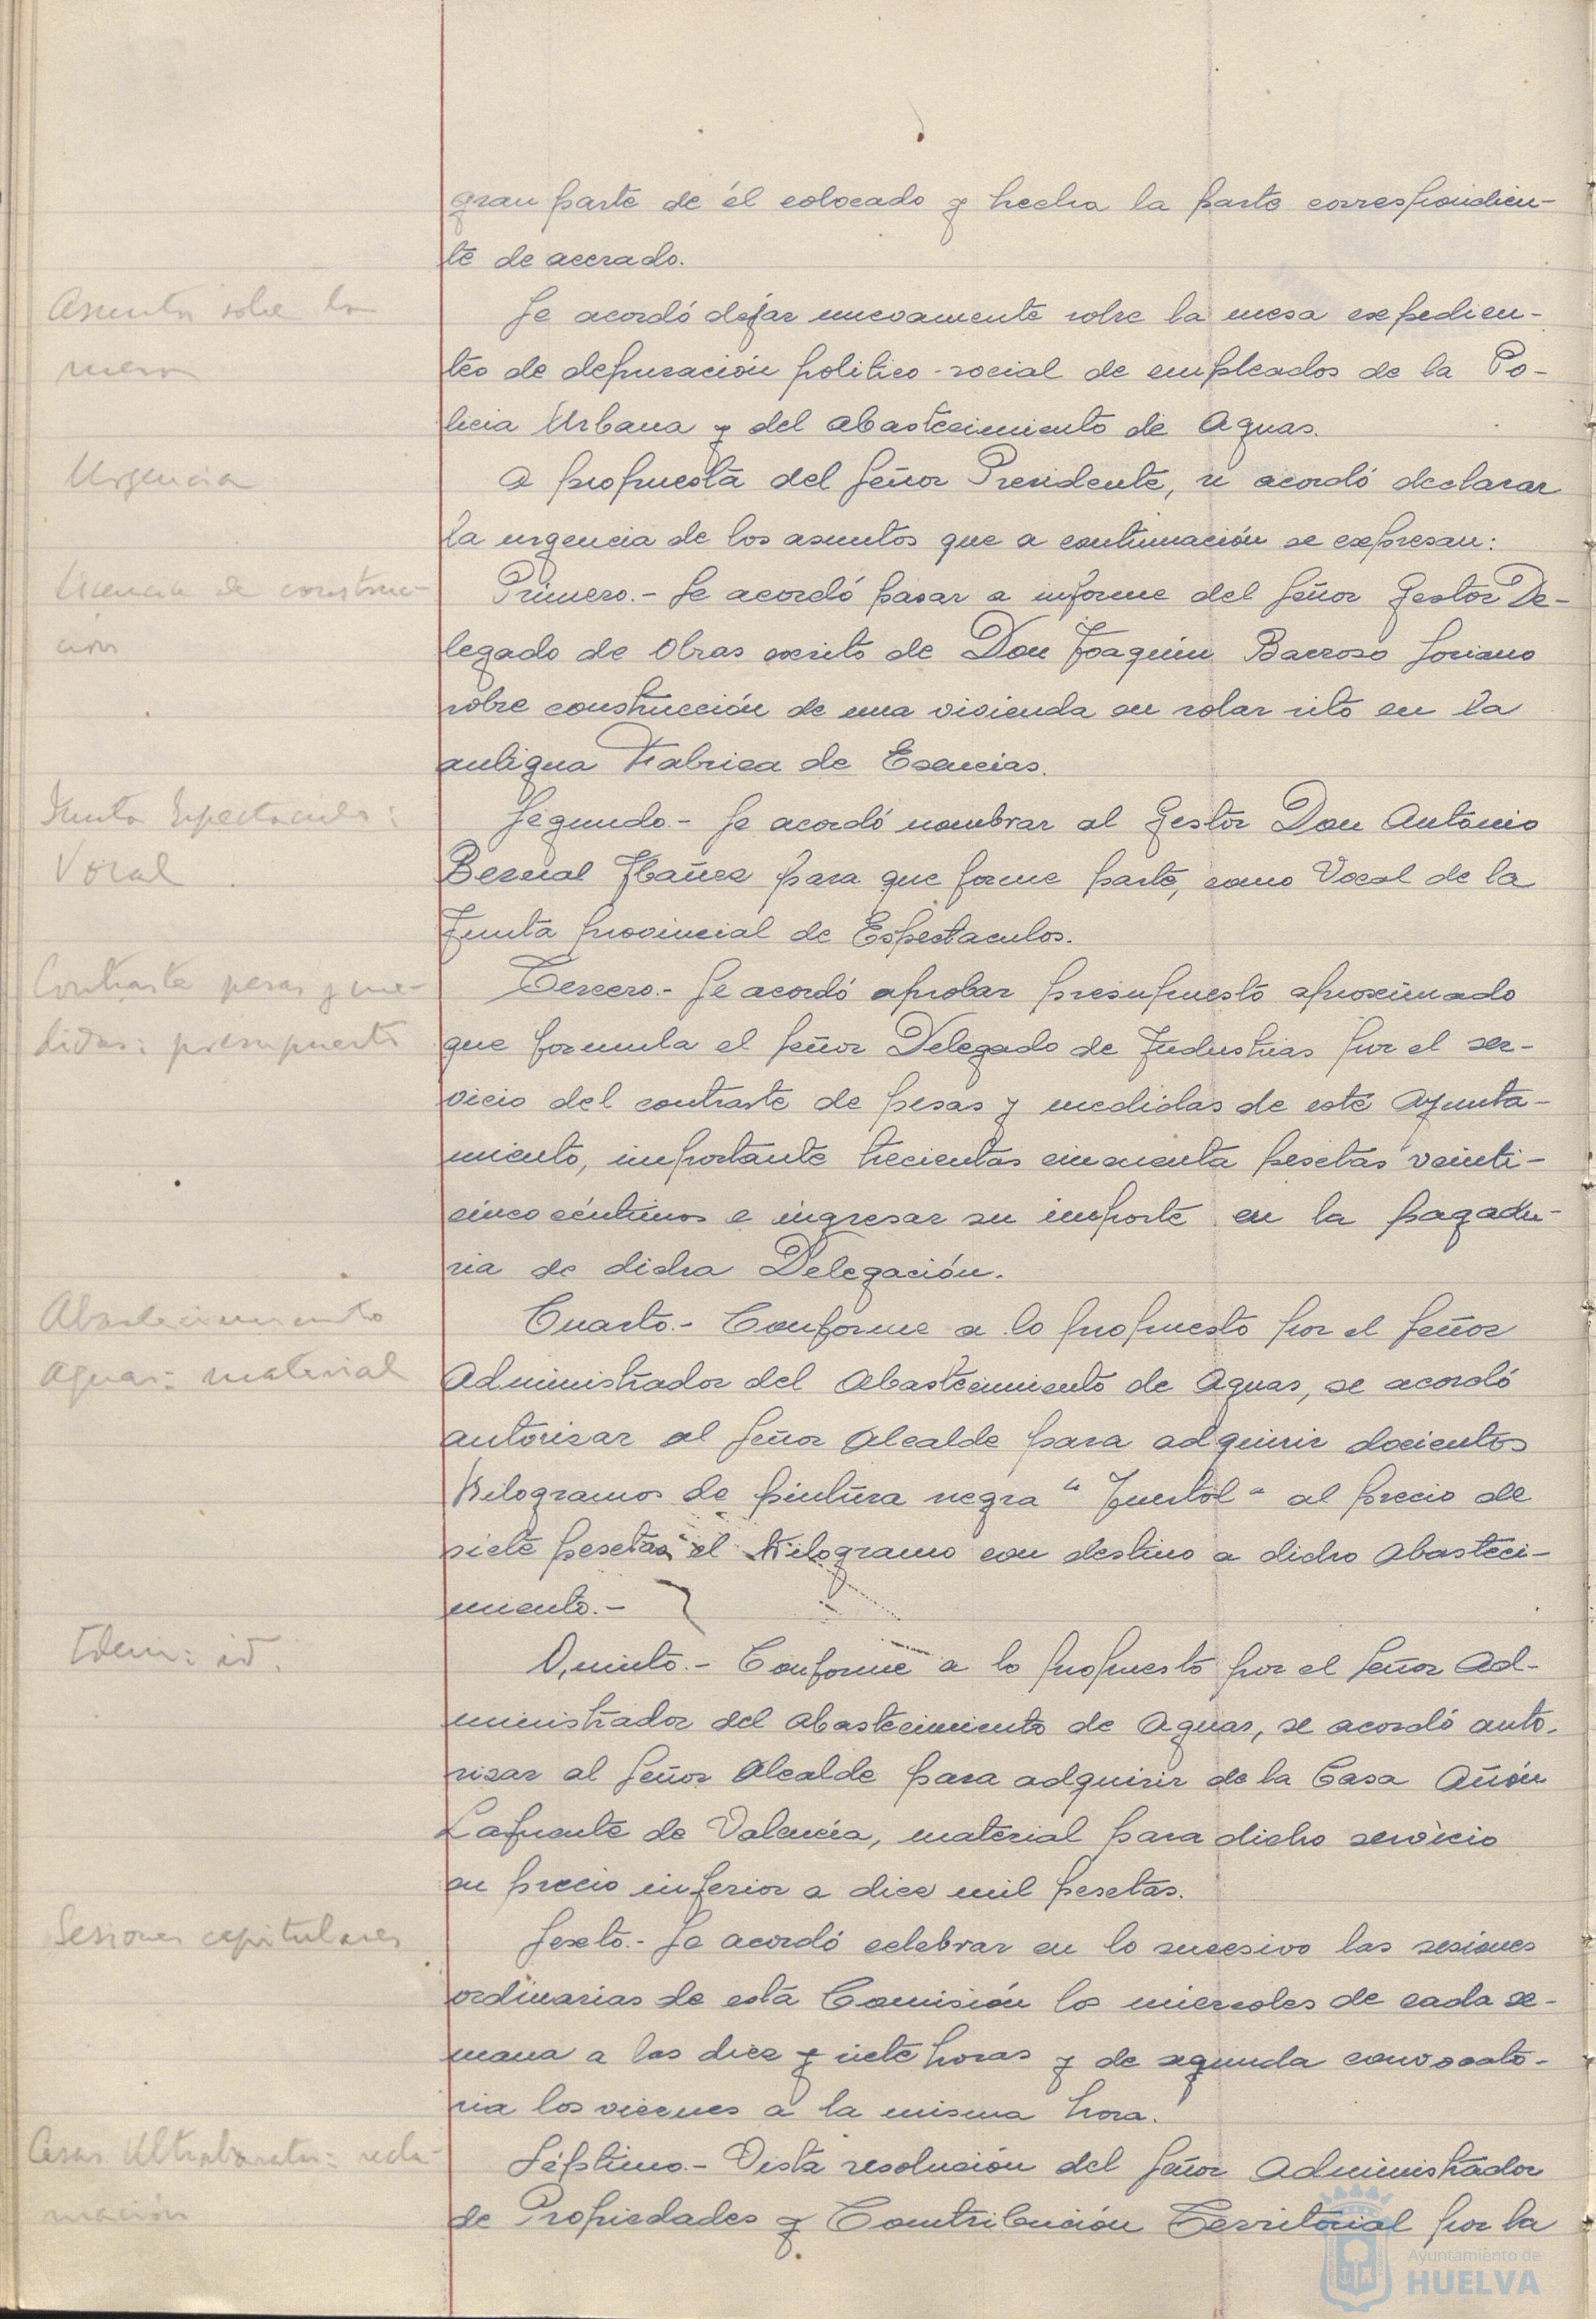 gran parte de él colocado y hecha la parte correspondien-
te de acerado.
Asuntos sobre la
mesa
Se acordó dejar nuevamente sobre la mesa expedien-
tes de depuración politico-social de empleados de la Po-
licia Urbana y del abastecimiento de Aguas.
Urgencia
A propuesta del Señor Presidente, se acordó declarar
la urgencia de los asuntos que a continuación se expresan:
Licencia de construc-
ción
Primero.- Se acordó pasar a informe del Señor Gestor De-
legado de Obras escrito de Don Joaquín Barroso Soriano
sobre construcción de una vivienda en solar sito en la
antigua Fabrica de Esencias.
Junta Espectaculos:
Vocal
Segundo.- Se acordó nombrar al Gestor Don Antonio
Bernal Ibañez para que forme parte, como Vocal de la
Junta provincial de Espectaculos.
Contraste pesas y me-
didas: presupuesto
Tercero.- Se acordó aprobar presupuesto aproximado
que formula el Señor Delegado de Industrias por el ser-
vicio del contraste de pesas y medidas de este Ayunta-
miento, importante trecientas cincuenta pesetas veinti-
cinco céntimos e ingresar su importe en la pagadu-
ria de dicha Delegación.
Abastecimiento
Aguas: material
Cuarto.- Conforme a lo propuesto por el Señor
Administrador del Abastecimiento de Aguas, se acordó
autorizar al Señor Alcalde para adquirir docientos
Kilogramos de pintura negra "Juntol" al precio de
siete pesetas el Kilogramo con destino a dicho Abasteci-
miento.-
Idem: id.
Quinto.- Conforme a lo propuesto por el Señor Ad-
ministrador del abastecimiento de Aguas, se acordó auto-
rizar al Señor Alcalde para adquirir de la Casa Añón
Lafuente de Valencia, material para dicho servicio
en precio inferior a diez mil pesetas.
Sesiones capitulares
Sexto.- Se acordó celebrar en lo sucesivo las sesiones
ordinarias de esta Comisión los miercoles de cada se-
mana a las diez y siete horas y de segunda convocato-
ria los viernes a la misma hora.
Casas Ultrabaratas: recla-
mación
Séptimo.- Vista resolución del Señor Administrador
de Propiedades y Contribución Territorial por la
Ayuntamiento de
HUELVA